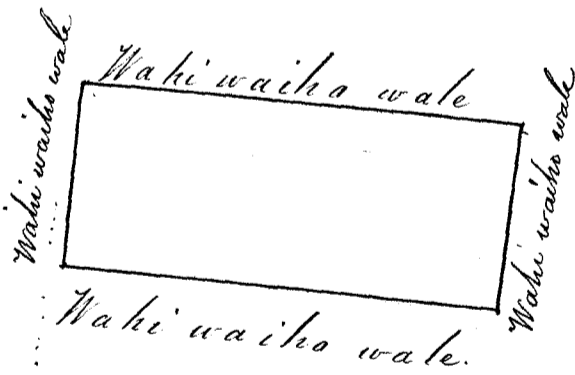 Wahi waiho wale
Wahi waiho wale
Wahi waiho wale
Wahi waiho wale.